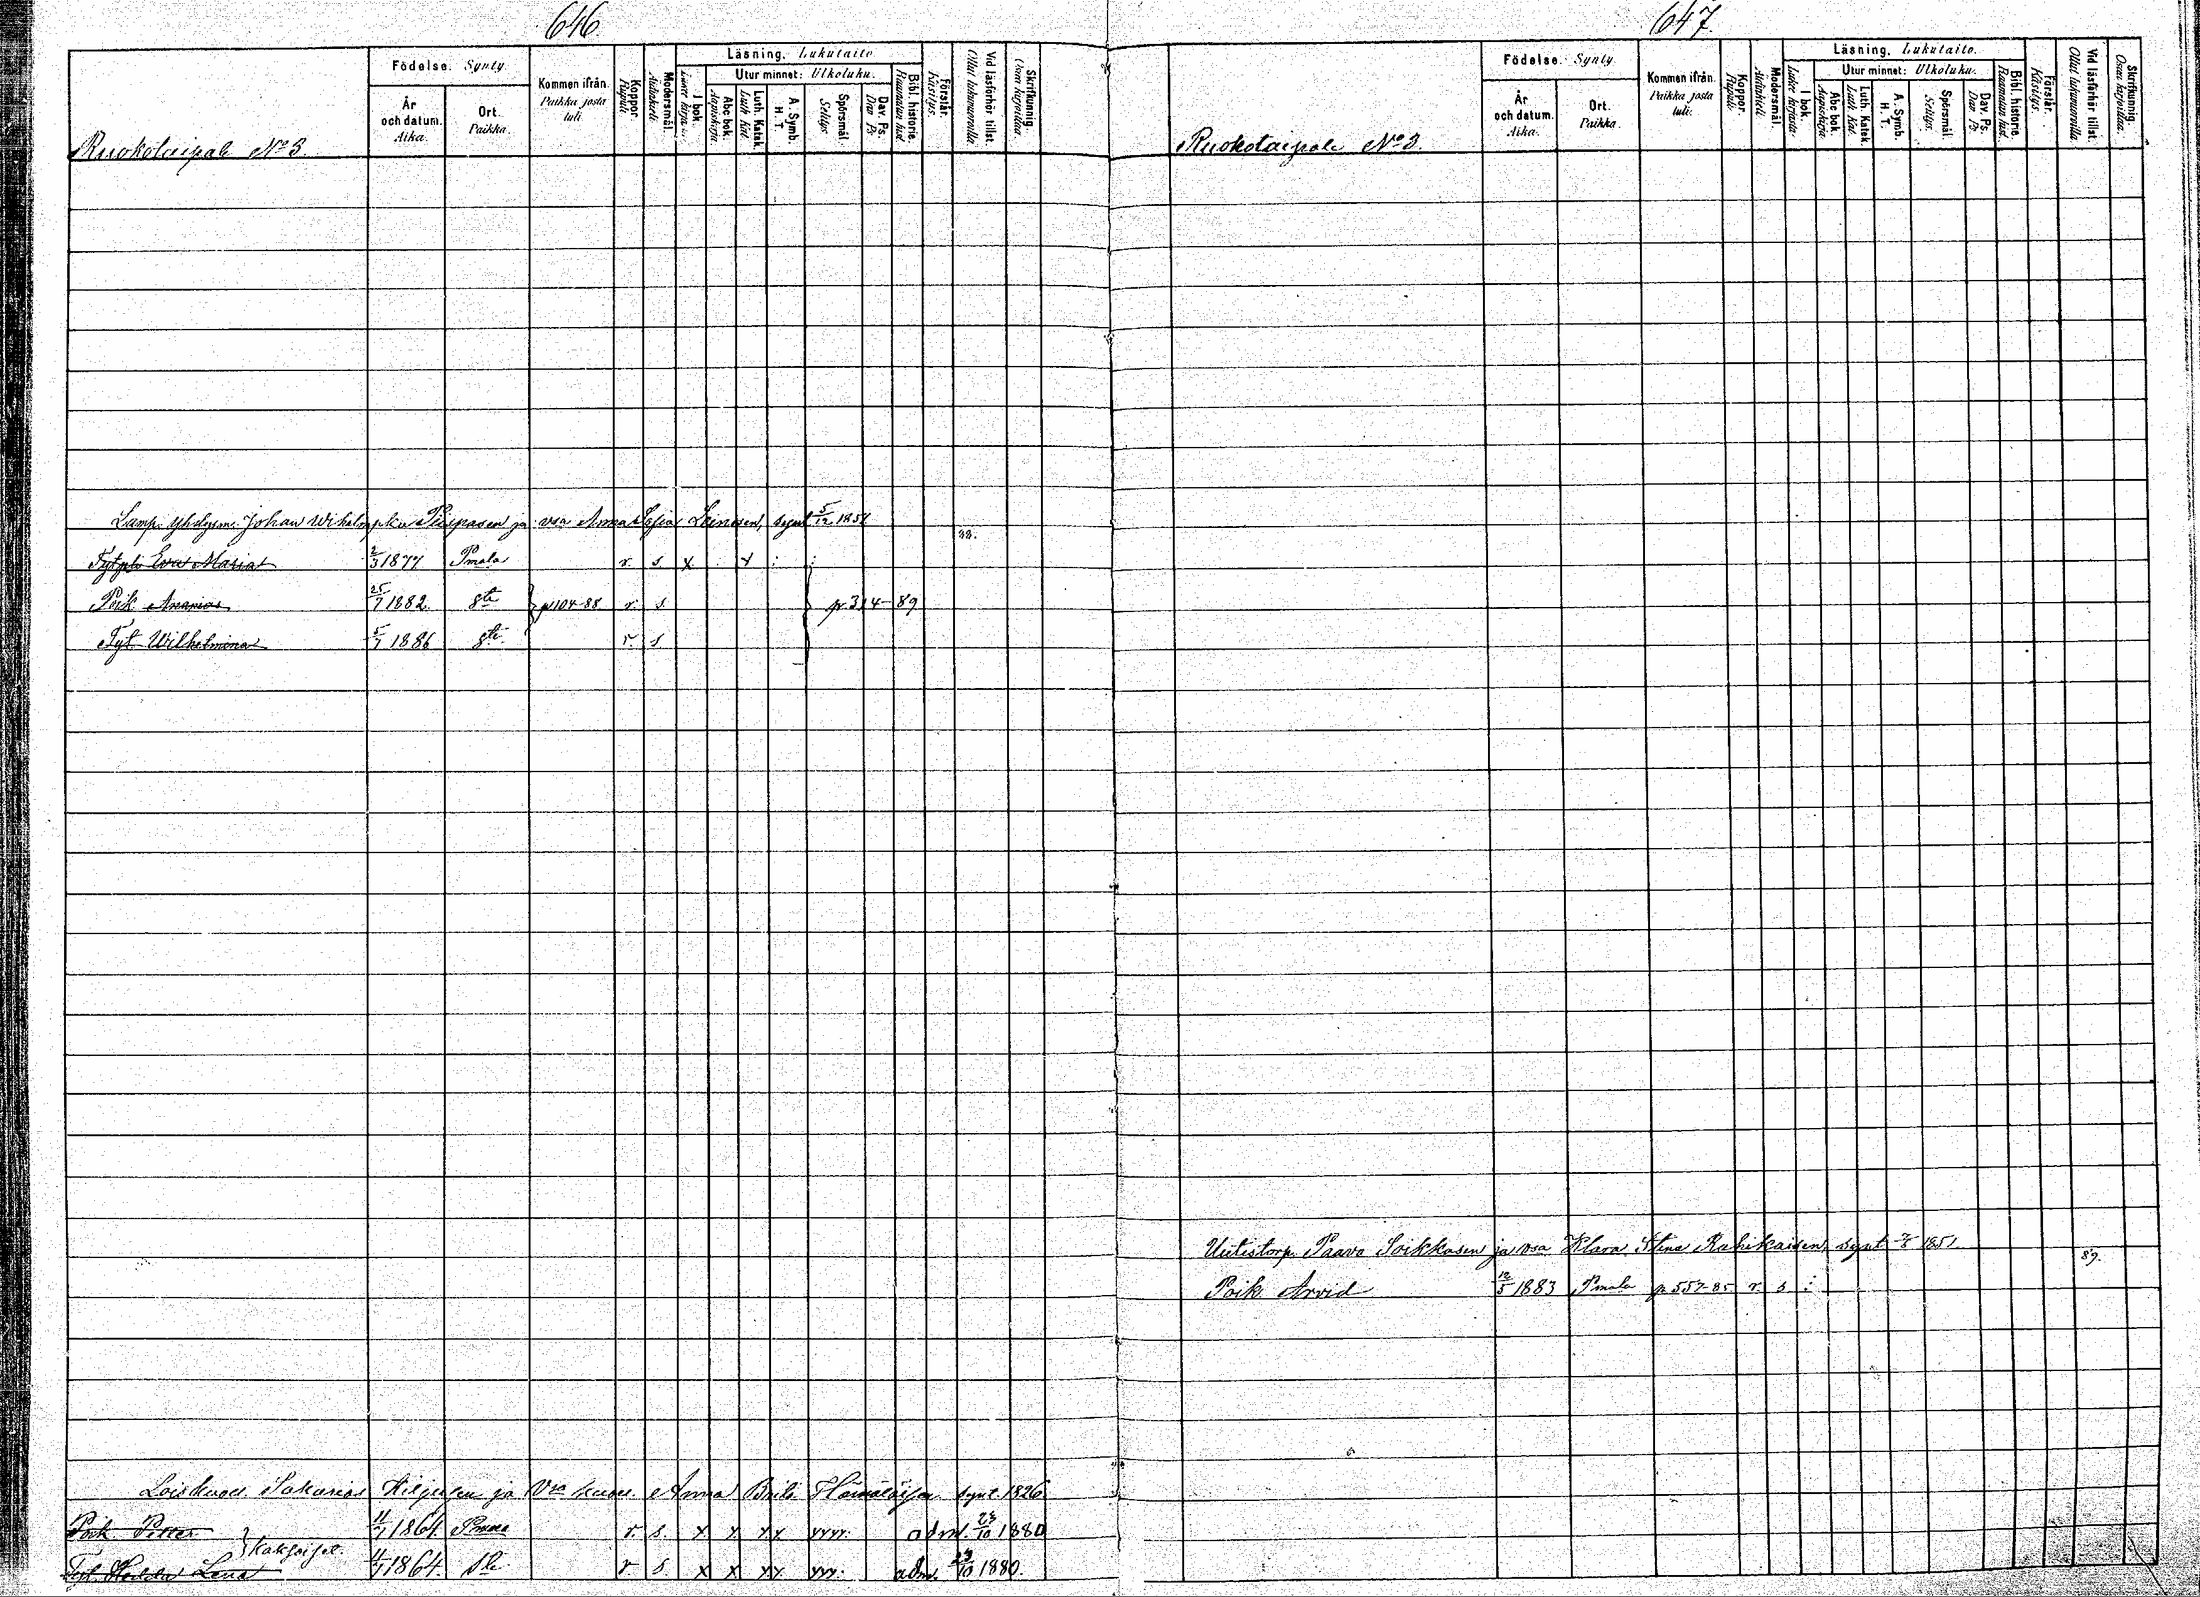 646
Födelse. Synty.
Kommen ifrån.
Paikka josta tuli.
Koppor. Rupuli
Modersmål. Äidinkieli
Läsning. Lukutaito
Utur minnet: Ulkoluku.
År och datum. Aika.
Ort. Paikka.
I bok.
Abc bok. Aapiskirja
Luth. Katek. Luth. Kat.
A. Symb. H. T.
Spörsmål. Selitys.
Dav. Ps. Dav. Ps.
Bibl. historie. Raamatun hist.
Förstår. Käsitys.
Vid läsförhör tillst. Ollut lukuvuorolla
Skrifkunnig. Osaa kirjoittaa.
Ruokolaipale No 3.
Lamp. Johan Wilhelm Piispasen ja vsa Anna Sofia synt 5/12 1851
88.
Tytpli Eva Maria 2/3 1877 Pmala r. s. x
Poik Ananias 25/7 1882 ste p 104-88 r. s. pr 314-89
Tyt Wilhelmina 5/7 1886 ste r. s
Loiskuoll Sakarias Hiljusen ja Vsa kuoll. Anna Brita Hämäläisen synt. 1826
Poik Petter 11/7 1864 Pmala r. s. x x xx yyyy. adm. 23/10 1880
Kaksoiset.
Tyt. Hedda Lena 11/7 1864 ste r s. x x xx yyy. adm. 23/10 1880.
647.
Födelse. Synty.
Kommen ifrån.
Paikka josta tuli.
Koppor. Rupuli
Modersmål. Äidinkieli
Läsning. Lukutaito.
Utur minnet: Ulkoluku.
År och datum. Aika.
Ort. Paikka.
I bok. Lukee kirjasta.
Abc bok. Aapiskirja
Luth. Katek. Luth. Kat.
A. Symb. H. T.
Spörsmål. Selitys.
Dav. Ps. Dav. Ps.
Bibl. historie. Raamatun hist.
Förstår. Käsitys.
Vid läsförhör tillst. Ollut lukuvuorolla
Skrifkunnig. Osaa kirjoittaa.
Ruokolaipale No 3.
Uutistorp. Paavo Soikkasen ja vsa Klara Stina Rahikaisen, synt 1851
89.
Poik Arvid 12/5 1883 Pmala p 557-85 r. s